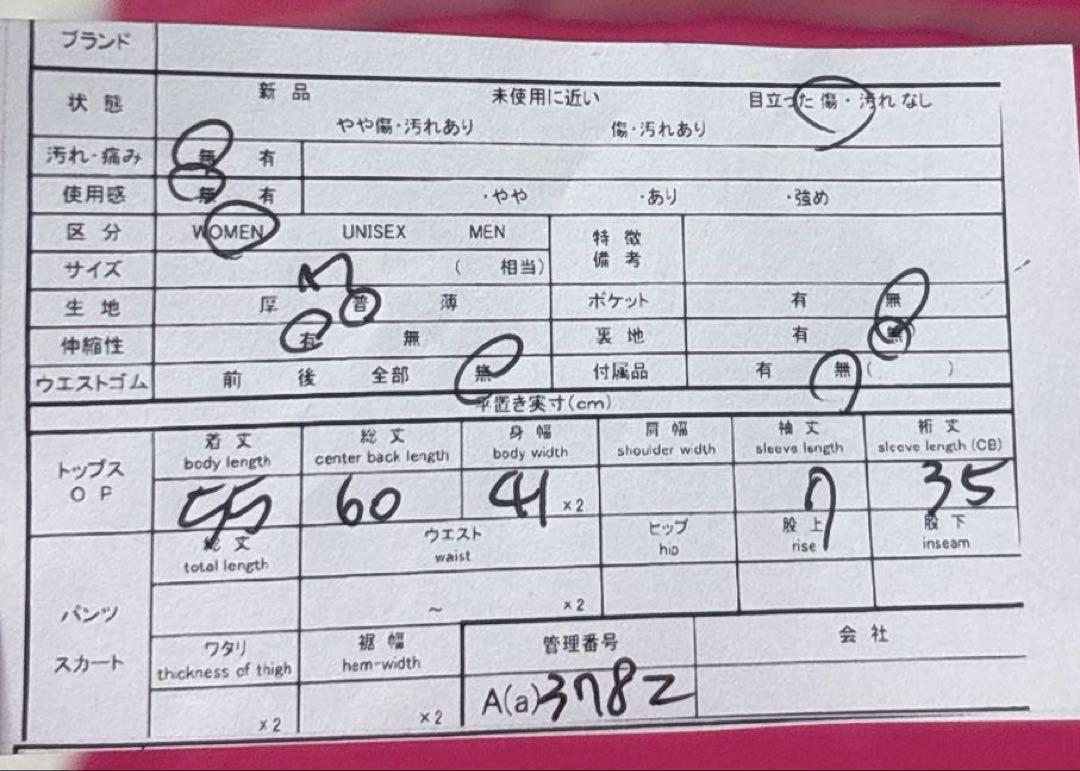 ブランド
状態 新品 未使用に近い 目立った傷・汚れなし
やや傷・汚れあり 傷・汚れあり
汚れ・痛み 無 有
使用感 無 有 ・やや ・あり ・強め
区分 WOMEN UNISEX MEN 特徴備考
サイズ ( 相当)
生地 厚 普 薄 ポケット 有 無
伸縮性 有 無 裏地 有 無
ウエストゴム 前 後 全部 無 付属品 有 無 ( )
平置き実寸(cm)
トップス OP 着丈 総丈 身幅 肩幅 袖丈 裄丈
body length center back length body width shoulder width sleeve length sleeve length (CB)
55 60 41 ×2 7 35
総丈 ウエスト ヒップ 股上 股下
total length waist hip rise inseam
パンツ ~ ×2
スカート ワタリ 裾幅 管理番号 会社
thickness of thigh hem-width
×2 ×2 A(a)3782